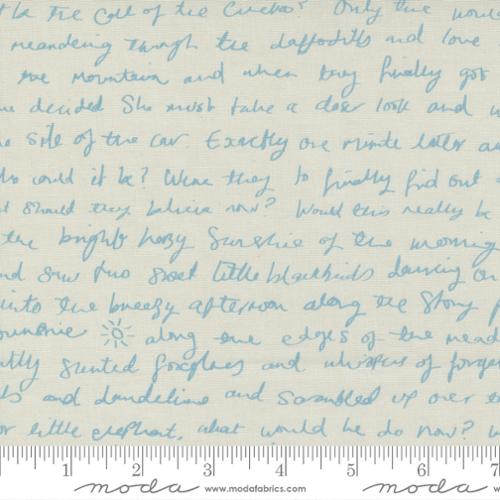 be the call of the Cuckoo? Only the
meandering through the daffodils and love
the mountain and when they finally got
decided She must take a closer look and
the side of the car. Exactly one minute later
who could it be? Were they to finally find out
should they believe now? Would this really be
the bright hazy Sunshine of the morning
and saw two sweet little blackbirds dancing on
into the breezy afternoon along the Stony
along the edges of the
scented foxgloves and whispers of
and dandelions and Scrambled up over
little elephant, what would he do now?
1 2 3 4 5 6 7
moda www.modafabrics.com moda